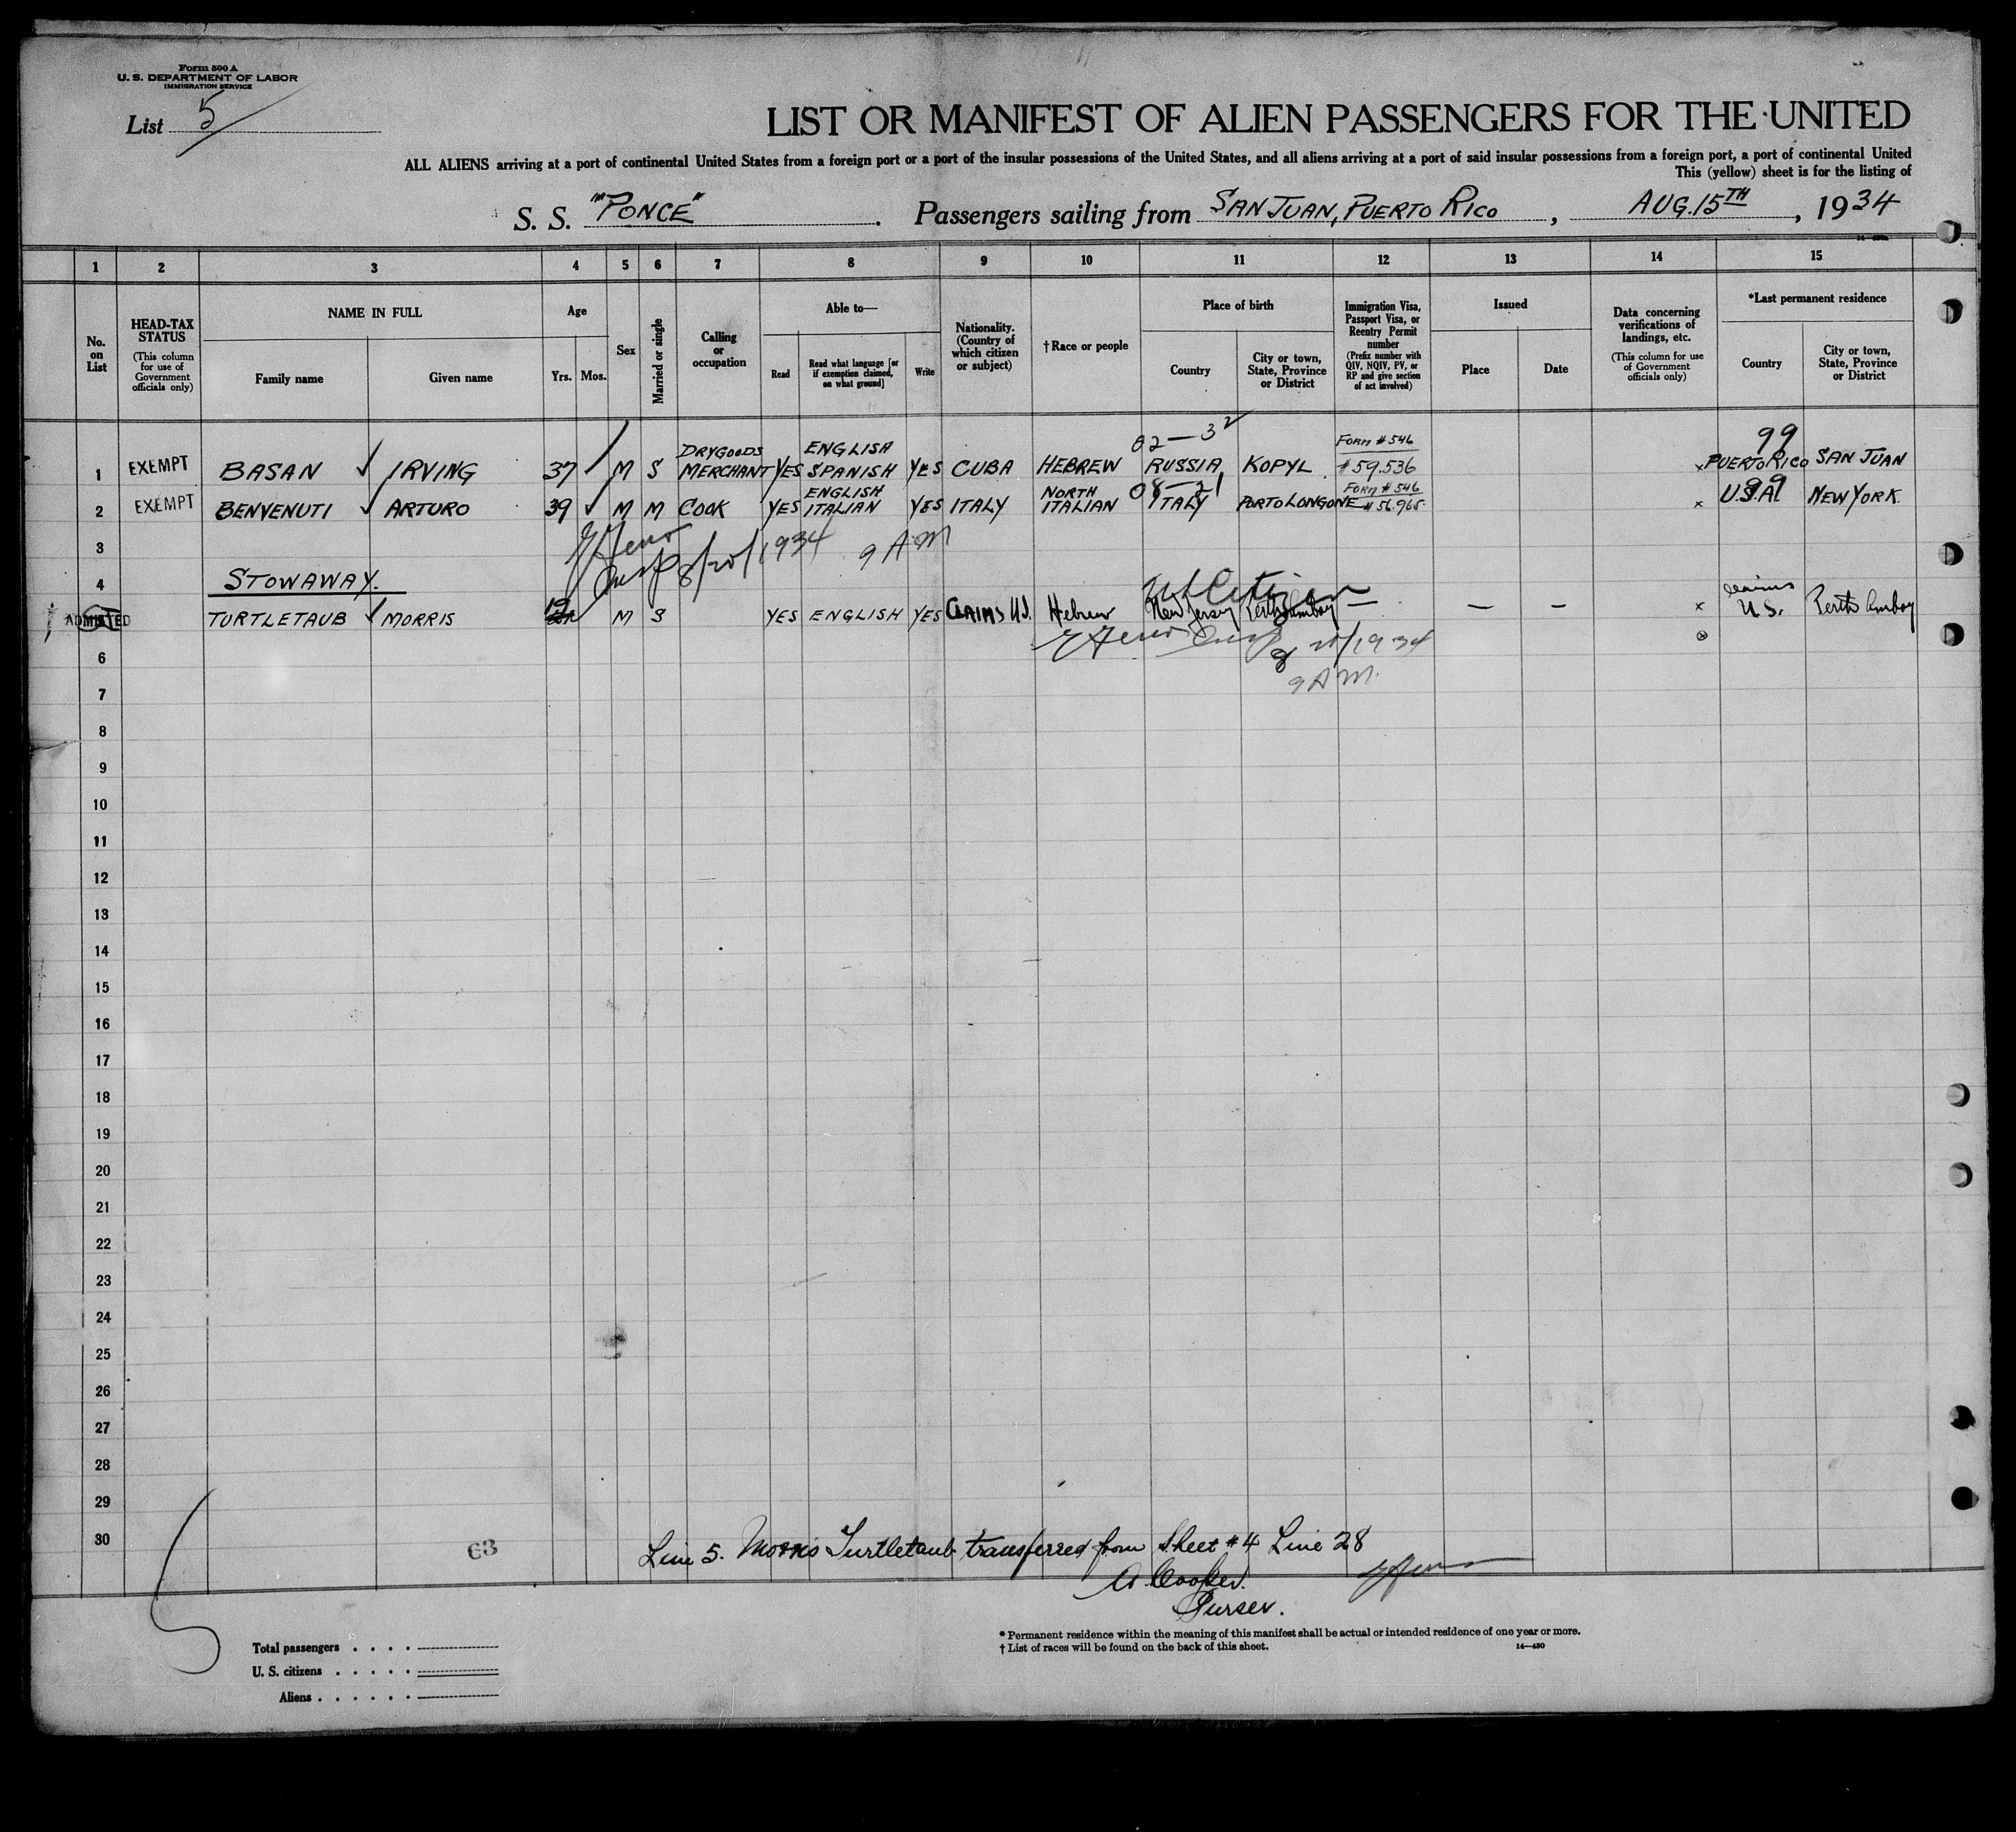 Form 500 A
U. S. DEPARTMENT OF LABOR
IMMIGRATION SERVICE
List 5
LIST OR MANIFEST OF ALIEN PASSENGERS FOR THE UNITED
ALL ALIENS arriving at a port of continental United States from a foreign port or a port of the insular possessions of the United States, and all aliens arriving at a port of said insular possessions from a foreign port, a port of continental United
This (yellow) sheet is for the listing of
S. S. "PONCE" . Passengers sailing from SAN JUAN, PUERTO RICO , AUG. 15TH , 1934
1 2 3 4 5 6 7 8 9 10 11 12 13 14 15
No. on List
HEAD-TAX STATUS (This column for use of Government officials only)
NAME IN FULL Family name Given name
Age Yrs. Mos.
Sex
Married or single
Calling or occupation
Able to— Read Read what language [or if exemption claimed, on what ground] Write
Nationality. (Country of which citizen or subject)
†Race or people
Place of birth Country City or town, State, Province or District
Immigration Visa, Passport Visa, or Reentry Permit number (Prefix number with QIV, NQIV, PV, or RP and give section of act involved)
Issued Place Date
Data concerning verifications of landings, etc. (This column for use of Government officials only)
*Last permanent residence Country City or town, State, Province or District
02-32 99
1 EXEMPT BASAN ✓ IRVING 37 M S DRYGOODS MERCHANT YES ENGLISH SPANISH YES CUBA HEBREW RUSSIA KOPYL FORM #546 #59.536 x PUERTO RICO SAN JUAN
08-21 99
2 EXEMPT BENVENUTI ✓ ARTURO 39 ✓ M M COOK YES ENGLISH ITALIAN YES ITALY NORTH ITALIAN ITALY PORTOLONGONE FORM #546 #56.965 x U.S.A. NEW YORK
3 Insp 8/20/1934 9 AM
4 STOWAWAY. US Citizen
5 ADMITTED TURTLETAUB ✓ MORRIS 19 M S YES ENGLISH YES CLAIMS U.S. Hebrew New Jersey Perth Amboy — — — x claims U.S. Perth Amboy
6 Insp 8/20/1934
7 9 AM.
8
9
10
11
12
13
14
15
16
17
18
19
20
21
22
23
24
25
26
27
28
29
30
63
Line 5. Morris Turtletaub transferred from Sheet #4 Line 28
A. Cooper.
Purser.
Total passengers . . . .
U. S. citizens . . . . .
Aliens . . . . . .
* Permanent residence within the meaning of this manifest shall be actual or intended residence of one year or more.
† List of races will be found on the back of this sheet. 14—480